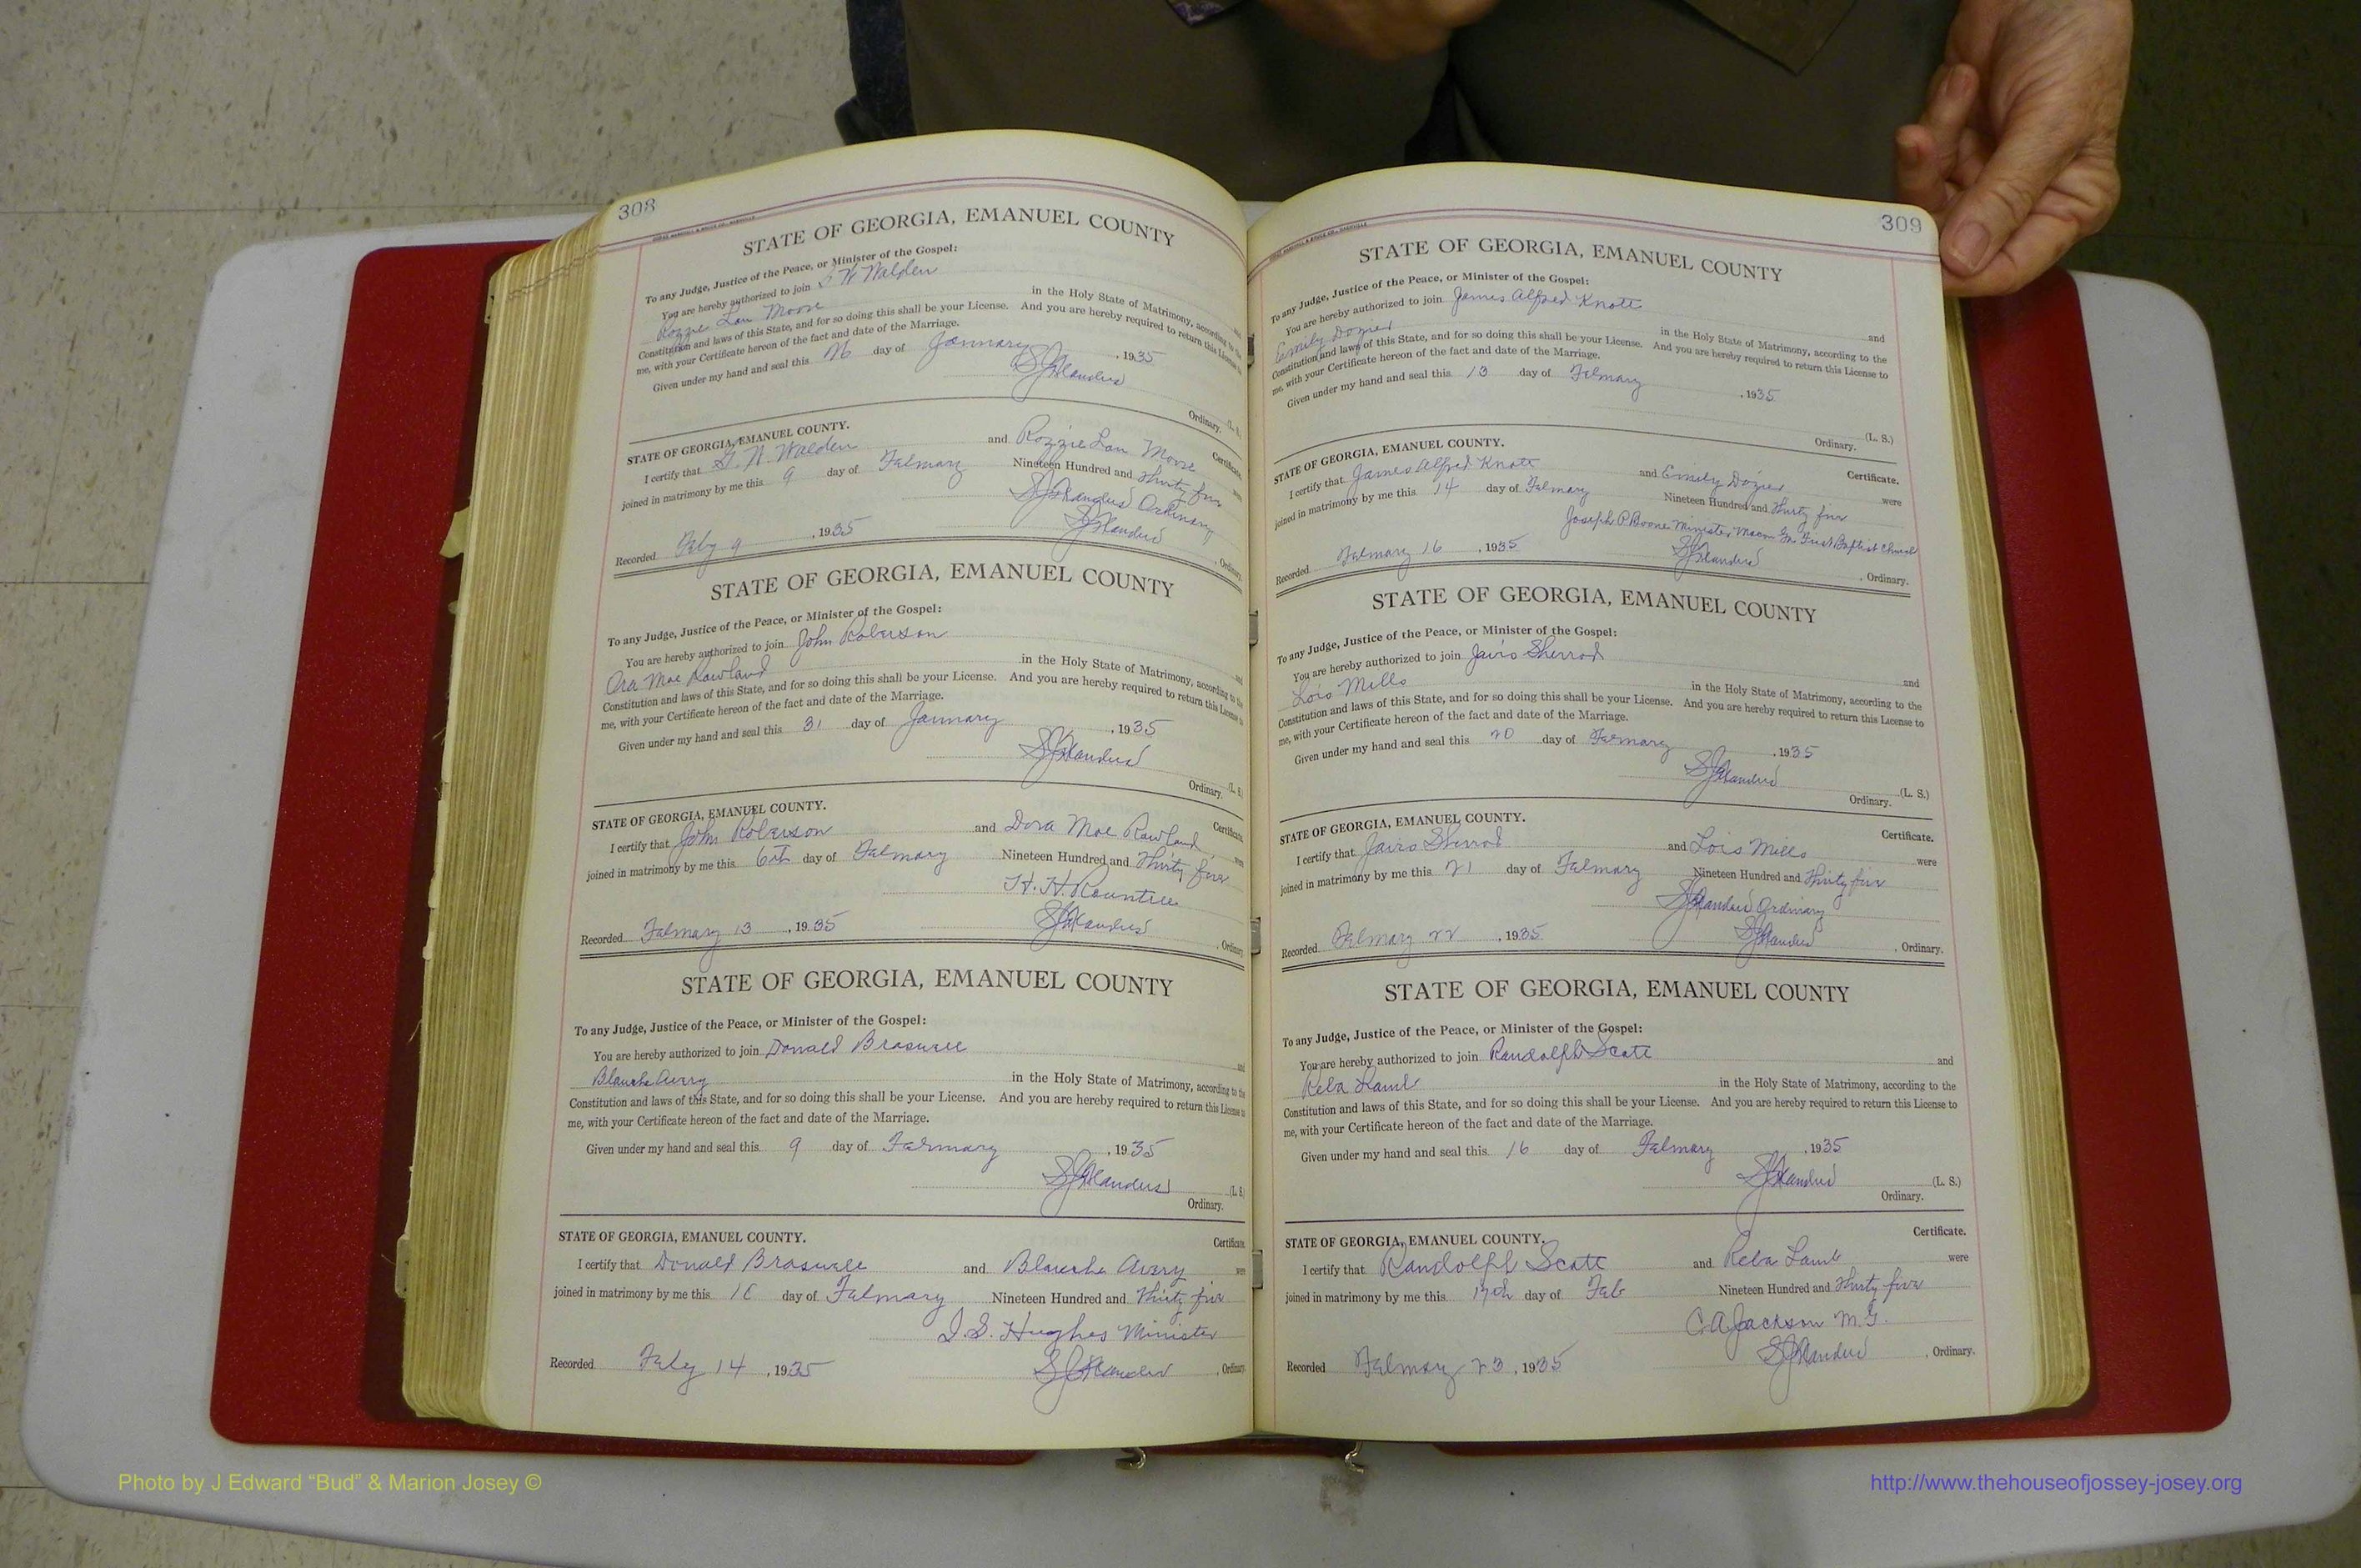 308
STATE OF GEORGIA, EMANUEL COUNTY
To any Judge, Justice of the Peace, or Minister of the Gospel:
You are hereby authorized to join S W Walden and
Rozzie Lou Moore in the Holy State of Matrimony, according to the
Constitution and laws of this State, and for so doing this shall be your License. And you are hereby required to return this License to
me, with your Certificate hereon of the fact and date of the Marriage.
Given under my hand and seal this 26 day of January, 1935
(L. S.)
Ordinary.
STATE OF GEORGIA, EMANUEL COUNTY. Certificate.
I certify that W. Walden and Rozzie Lou Moore were
joined in matrimony by me this 9 day of February Nineteen Hundred and Thirty five
Ordinary
Recorded Feby 9, 1935, Ordinary.
STATE OF GEORGIA, EMANUEL COUNTY
To any Judge, Justice of the Peace, or Minister of the Gospel:
You are hereby authorized to join John Roberson and
Ora Mae Rawland in the Holy State of Matrimony, according to the
Constitution and laws of this State, and for so doing this shall be your License. And you are hereby required to return this License to
me, with your Certificate hereon of the fact and date of the Marriage.
Given under my hand and seal this 31 day of January, 1935
(L. S.)
Ordinary.
STATE OF GEORGIA, EMANUEL COUNTY. Certificate.
I certify that John Roberson and Dora Mae Rawland were
joined in matrimony by me this 6th day of February Nineteen Hundred and Thirty five
H. H. Rountree
Recorded February 13, 1935, Ordinary.
STATE OF GEORGIA, EMANUEL COUNTY
To any Judge, Justice of the Peace, or Minister of the Gospel:
You are hereby authorized to join Donald Braswell and
Blanche Avery in the Holy State of Matrimony, according to the
Constitution and laws of this State, and for so doing this shall be your License. And you are hereby required to return this License to
me, with your Certificate hereon of the fact and date of the Marriage.
Given under my hand and seal this 9 day of February, 1935
(L. S.)
Ordinary.
STATE OF GEORGIA, EMANUEL COUNTY. Certificate
I certify that Donald Braswell and Blanche Avery were
joined in matrimony by me this 10 day of February Nineteen Hundred and Thirty five
Hughes Minister
Recorded Feby 14, 1935, Ordinary
309
STATE OF GEORGIA, EMANUEL COUNTY
To any Judge, Justice of the Peace, or Minister of the Gospel:
You are hereby authorized to join James Alfred Knott and
Emily Dozier in the Holy State of Matrimony, according to the
Constitution and laws of this State, and for so doing this shall be your License. And you are hereby required to return this License to
me, with your Certificate hereon of the fact and date of the Marriage.
Given under my hand and seal this 13 day of February, 1935
(L. S.)
Ordinary.
STATE OF GEORGIA, EMANUEL COUNTY. Certificate.
I certify that James Alfred Knott and Emily Dozier were
joined in matrimony by me this 14 day of February Nineteen Hundred and Thirty five
Joseph P Boone Minister Macon Ga First Baptist Church
Recorded February 16, 1935, Ordinary.
STATE OF GEORGIA, EMANUEL COUNTY
To any Judge, Justice of the Peace, or Minister of the Gospel:
You are hereby authorized to join Jairo Sherrod and
Lois Mills in the Holy State of Matrimony, according to the
Constitution and laws of this State, and for so doing this shall be your License. And you are hereby required to return this License to
me, with your Certificate hereon of the fact and date of the Marriage.
Given under my hand and seal this 20 day of February, 1935
(L. S.)
Ordinary.
STATE OF GEORGIA, EMANUEL COUNTY. Certificate.
I certify that Jairo Sherrod and Lois Mills were
joined in matrimony by me this 21 day of February Nineteen Hundred and Thirty five
Ordinary
Recorded February 22, 1935, Ordinary.
STATE OF GEORGIA, EMANUEL COUNTY
To any Judge, Justice of the Peace, or Minister of the Gospel:
You are hereby authorized to join Randolph Scott and
Reba Lamb in the Holy State of Matrimony, according to the
Constitution and laws of this State, and for so doing this shall be your License. And you are hereby required to return this License to
me, with your Certificate hereon of the fact and date of the Marriage.
Given under my hand and seal this 16 day of February, 1935
(L. S.)
Ordinary.
STATE OF GEORGIA, EMANUEL COUNTY. Certificate.
I certify that Randolph Scott and Reba Lamb were
joined in matrimony by me this 17th day of Feb Nineteen Hundred and Thirty five
C. A. Jackson M. G.
Recorded February 23, 1935, Ordinary.
Photo by J Edward “Bud” & Marion Josey ©
http://www.thehouseofjossey-josey.org